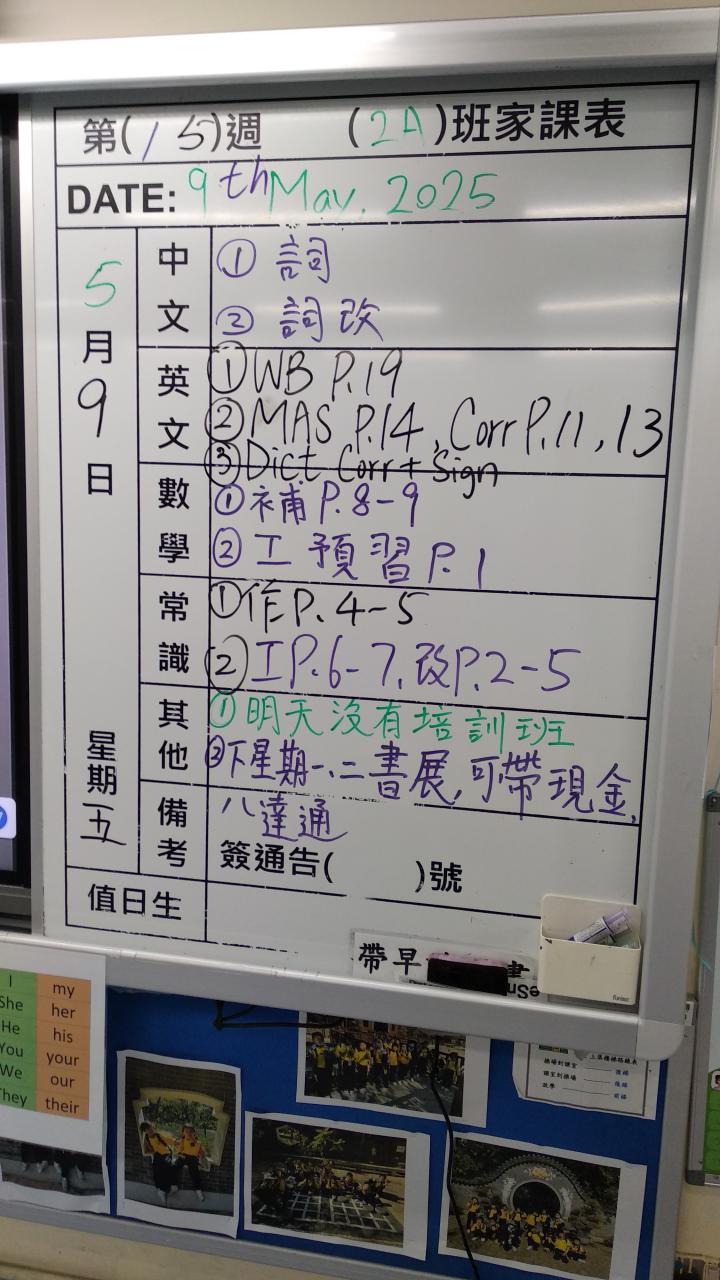 第(15)週 (2A)班家課表
DATE: 9th May. 2025
5月9日 星期五
中文
① 詞
② 詞改
英文
① WB P.19
② MAS P.14, Corr P.11, 13
③ Dict Corr + Sign
數學
① 補 P.8-9
② 工 預習 P.1
常識
① 作 P.4-5
② 工 P.6-7, 改 P.2-5
其他
① 明天沒有培訓班
② 下星期一、二書展, 可帶現金,
八達通
備考
簽通告( )號
值日生
帶早
I my
She her
He his
You your
We our
They their
課室到操場
放學